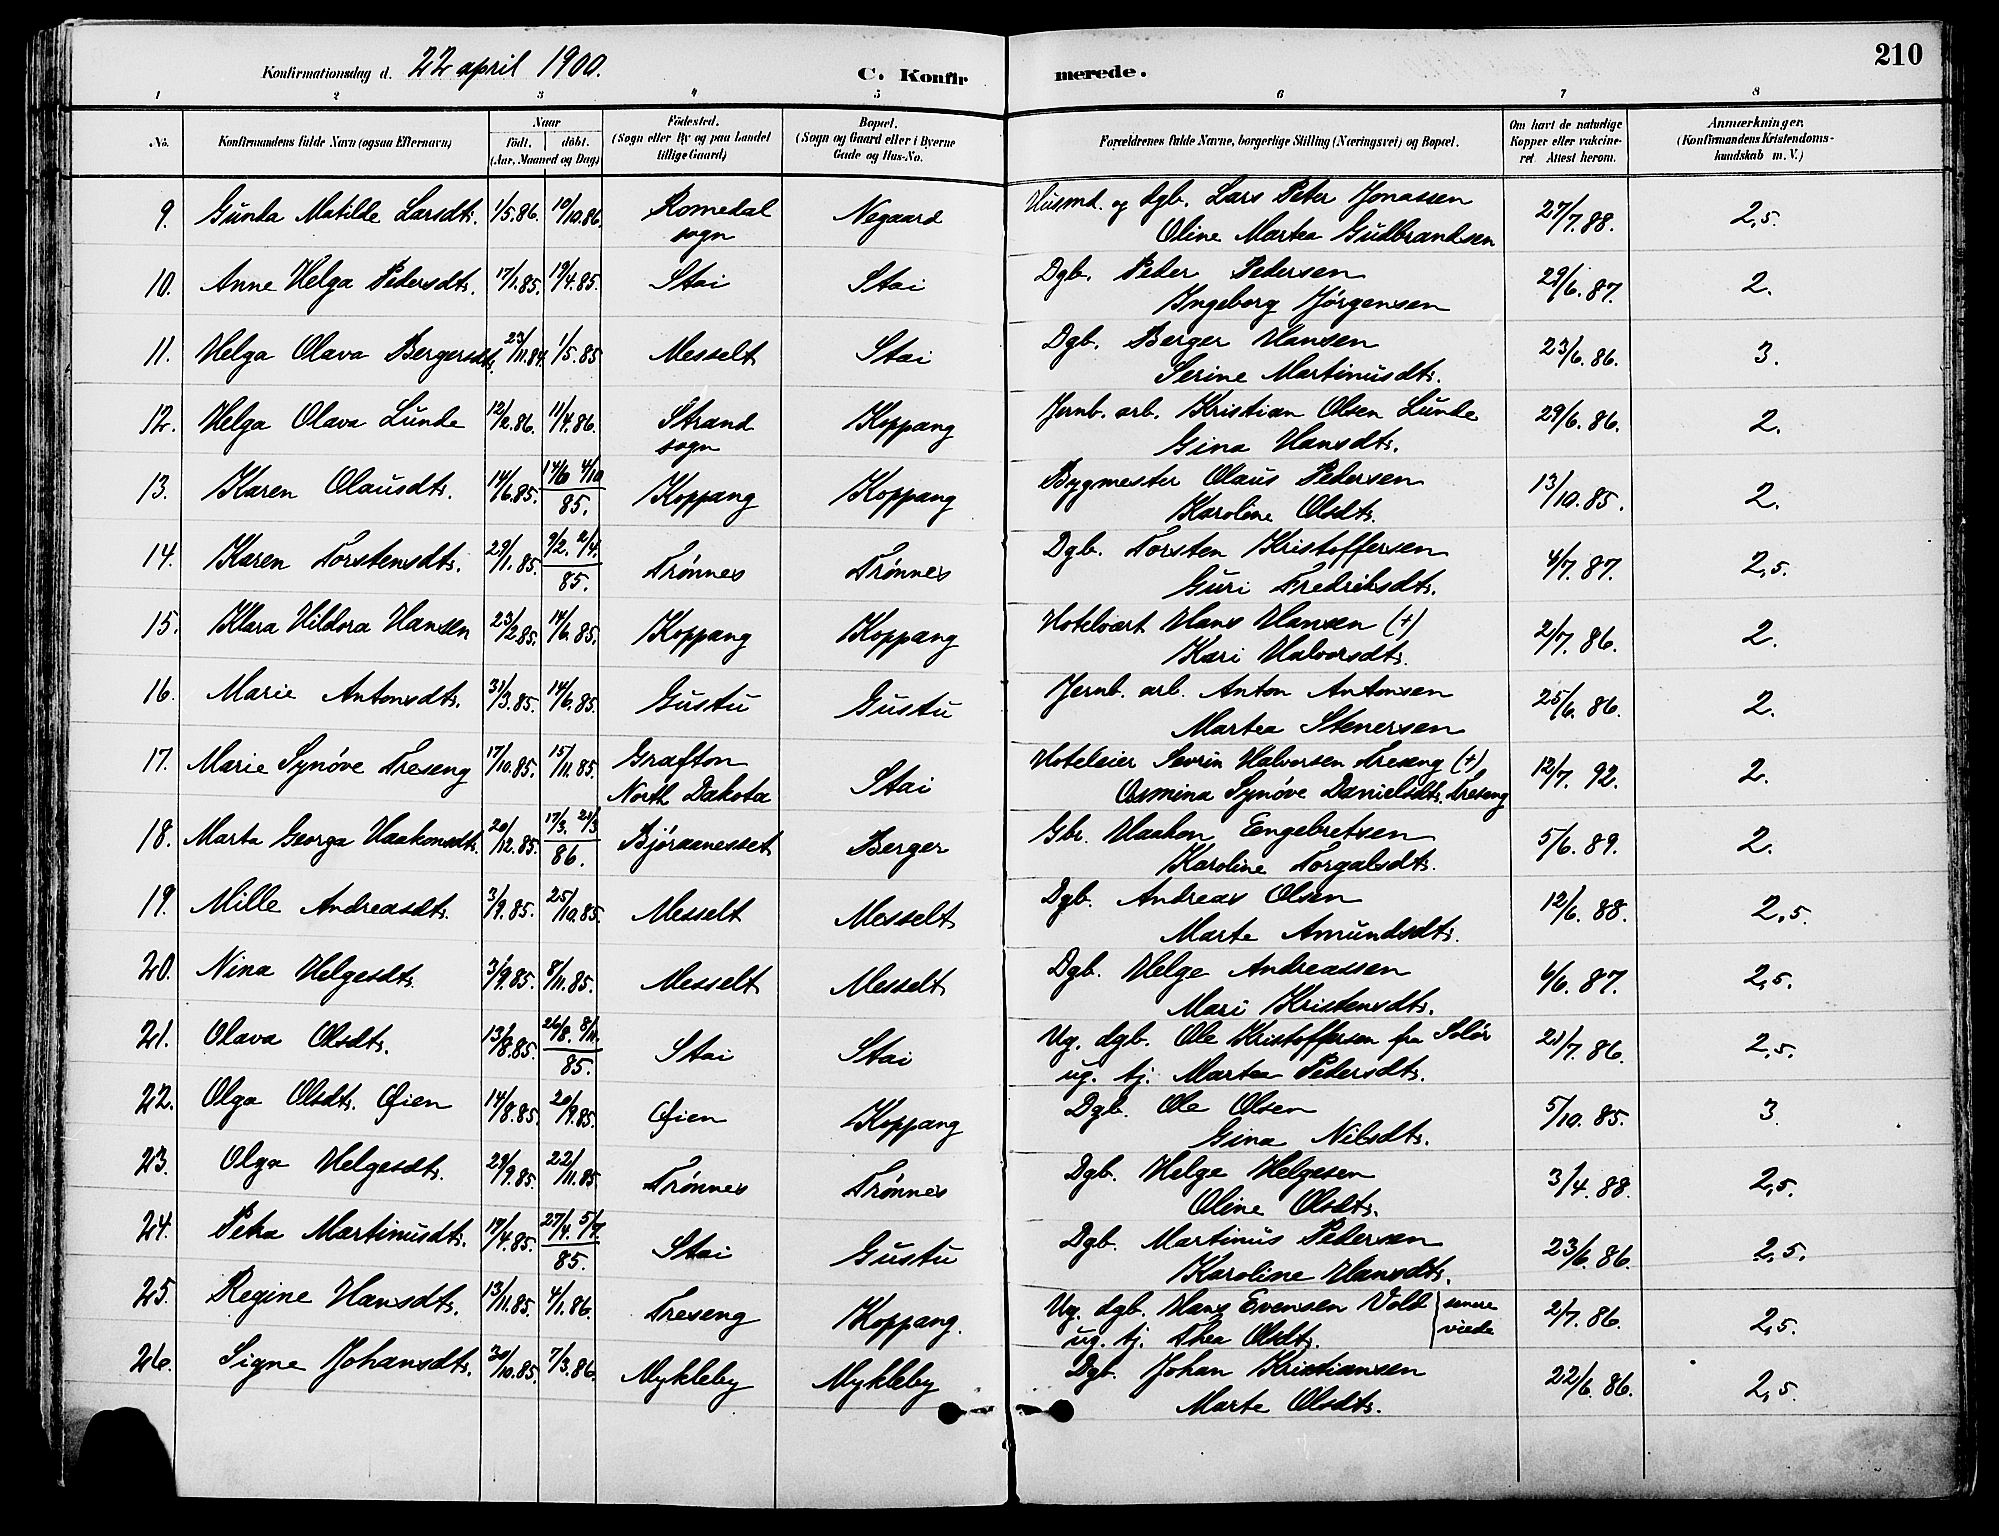 210
Konfirmationsdag d. 22 april 1900. C. Konfirmerede.
1 2 3 4 5 6 7 8
No. Konfirmandens fulde Navn (ogsaa Efternavn) Naar födt, döbt. (Aar, Maaned og Dag) Födested. (Sogn eller By og paa Landet tillige Gaard) Bopæl. (Sogn og Gaard eller i Byerne Gade og Hus-No. Forældrenes fulde Navne, borgerlige Stilling (Næringsvei) og Bopæl. Om havt de naturlige Kopper eller vakcineret. Attest herom. Anmærkninger. (Konfirmandens Kristendomskundskab m. V.)
9. Gunda Matilde Larsdtr. 1/5.86. 10/10.86. Romedal sogn Negaard Husmd. og dgb. Lars Peter Jonassen 27/7.88. 2,5.
Oline Martea Gudbrandsen
10. Anne Helga Pedersdtr. 17/1.85. 19/4.85. Stai Stai Dgb. Peder Pedersen 29/6.87. 2.
Ingeborg Jørgensen
11. Helga Olava Bergersdtr. 23/11.84. 1/5.85 Messelt Stai Dgb. Berger Hansen 23/6.86. 3.
Serine Martinusdtr.
12. Helga Olava Lunde 12/2.86. 11/4.86. Strand sogn Koppang Jernb. arb. Kristian Olsen Lunde 29/6.86. 2.
Gina Hansdtr.
13. Karen Olausdtr. 14/6.85. 14/6 4/10 85. Koppang Koppang Bygmester Olaus Pedersen 13/10.85. 2.
Karoline Olsdtr.
14. Karen Torstensdtr. 29/1.85. 9/2. 2/4. 85. Trønnes Trønnes Dgb. Torsten Kristoffersen 4/7.87. 2,5.
Guri Fredriksdtr.
15. Klara Hildora Hansen 23/2.85. 14/6.85. Koppang Koppang Hotelvært Hans Hansen (+) 2/7.86. 2.
Kari Halvorsdtr.
16. Marie Antonsdtr. 31/3.85. 14/6.85. Gustu Gustu Jernb. arb. Anton Antonsen 25/6.86. 2.
Martea Stenersen
17. Marie Synøve Treseng 17/10.85. 15/11.85. Grafton North Dakota Stai Hoteleier Sevrin Halvorsen Treseng (+) 12/7.92. 2.
Osmina Synøve Danielsdtr. Treseng
18. Marta Georga Haakonsdtr. 20/12.85. 17/3. 21/3 86. Bjøraanesset Berger Gbr. Haakon Engebretsen 5/6.89. 2.
Karoline Torgalsdtr.
19. Mille Andreasdtr. 3/9.85. 25/10.85. Messelt Messelt Dgb. Andreas Olsen 12/6.88. 2,5.
Marte Amundsdtr.
20. Nina Helgesdtr. 3/9.85. 8/11.85. Messelt Messelt Dgb. Helge Andreassen 6/6.87. 2,5.
Mari Kristensdtr.
21. Olava Olsdtr. 13/8.85. 26/8. 8/11. 85. Stai Stai Ug. dgb. Ole Kristoffersen fra Solør 21/7.86. 2,5.
ug. tj. Martea Pedersdtr.
22. Olga Olsdtr. Øien 14/8.85. 20/9.85. Øien Koppang Dgb. Ole Olsen 5/10.85. 3.
Gina Nilsdtr.
23. Olga Helgesdtr. 29/9.85. 22/11.85. Trønnes Trønnes Dgb. Helge Helgesen 3/4.88. 2,5.
Oline Olsdtr.
24. Petra Martinusdtr. 17/4.85. 27/4. 5/7. 85. Stai Gustu Dgb. Martinus Pedersen 23/6.86. 2,5.
Karoline Hansdtr.
25. Regine Hansdtr. 13/11.85. 4/1.86. Treseng Koppang. Ug. dgb. Hans Evensen Vold senere viede 2/7.86. 2,5.
ug. tj. Thea Olsdtr.
26. Signe Johansdtr. 30/10.85. 7/3.86. Mykleby Mykleby Dgb. Johan Kristiansen 22/6.86. 2,5.
Marte Olsdtr.